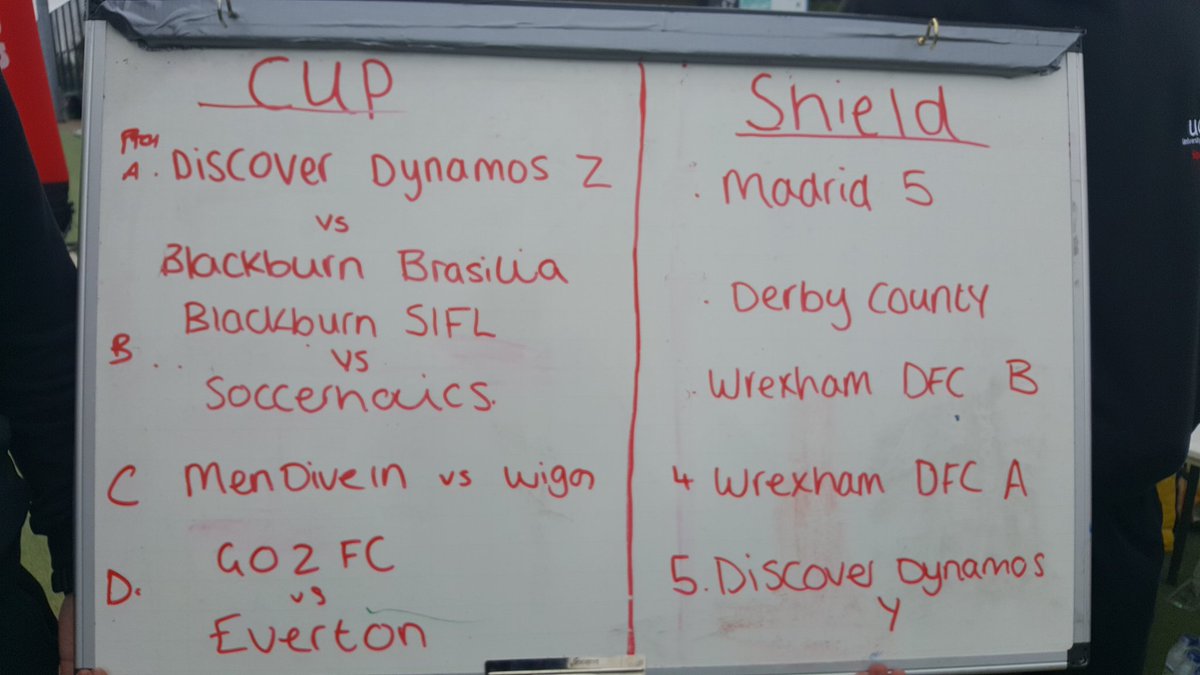 CUP
A. Discover Dynamos Z
vs
Blackburn Brasilia
Blackburn SIFL
B..
vs
Soccernaics.
C MenDiveIn vs Wigan
GO2 FC
D.
vs
Everton
Shield
. Madrid 5
. Derby County
. Wrexham DFC B
4 Wrexham DFC A
5. Discover Dynamos
Y